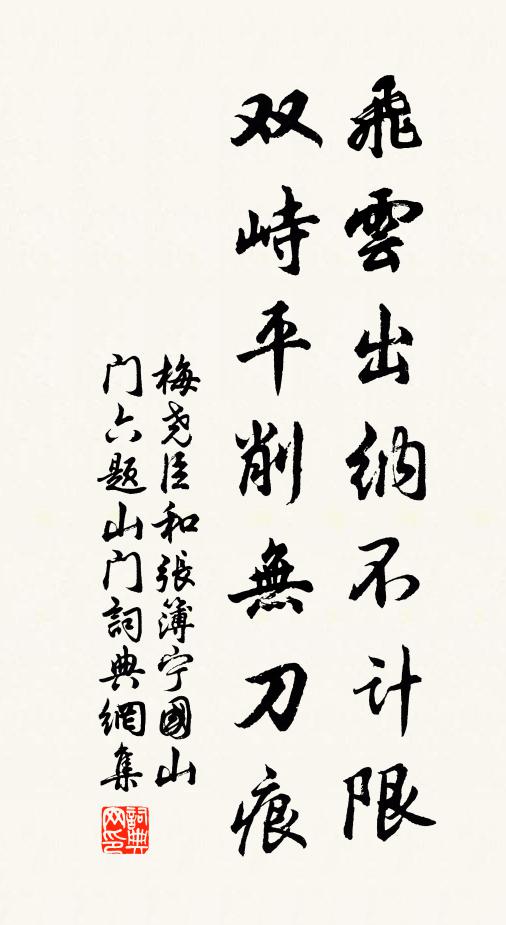 飛雲出纳不计限
双峙平削無刀痕
梅尧臣和張簿宁國山
门六题山门詞典網集
詞典网印